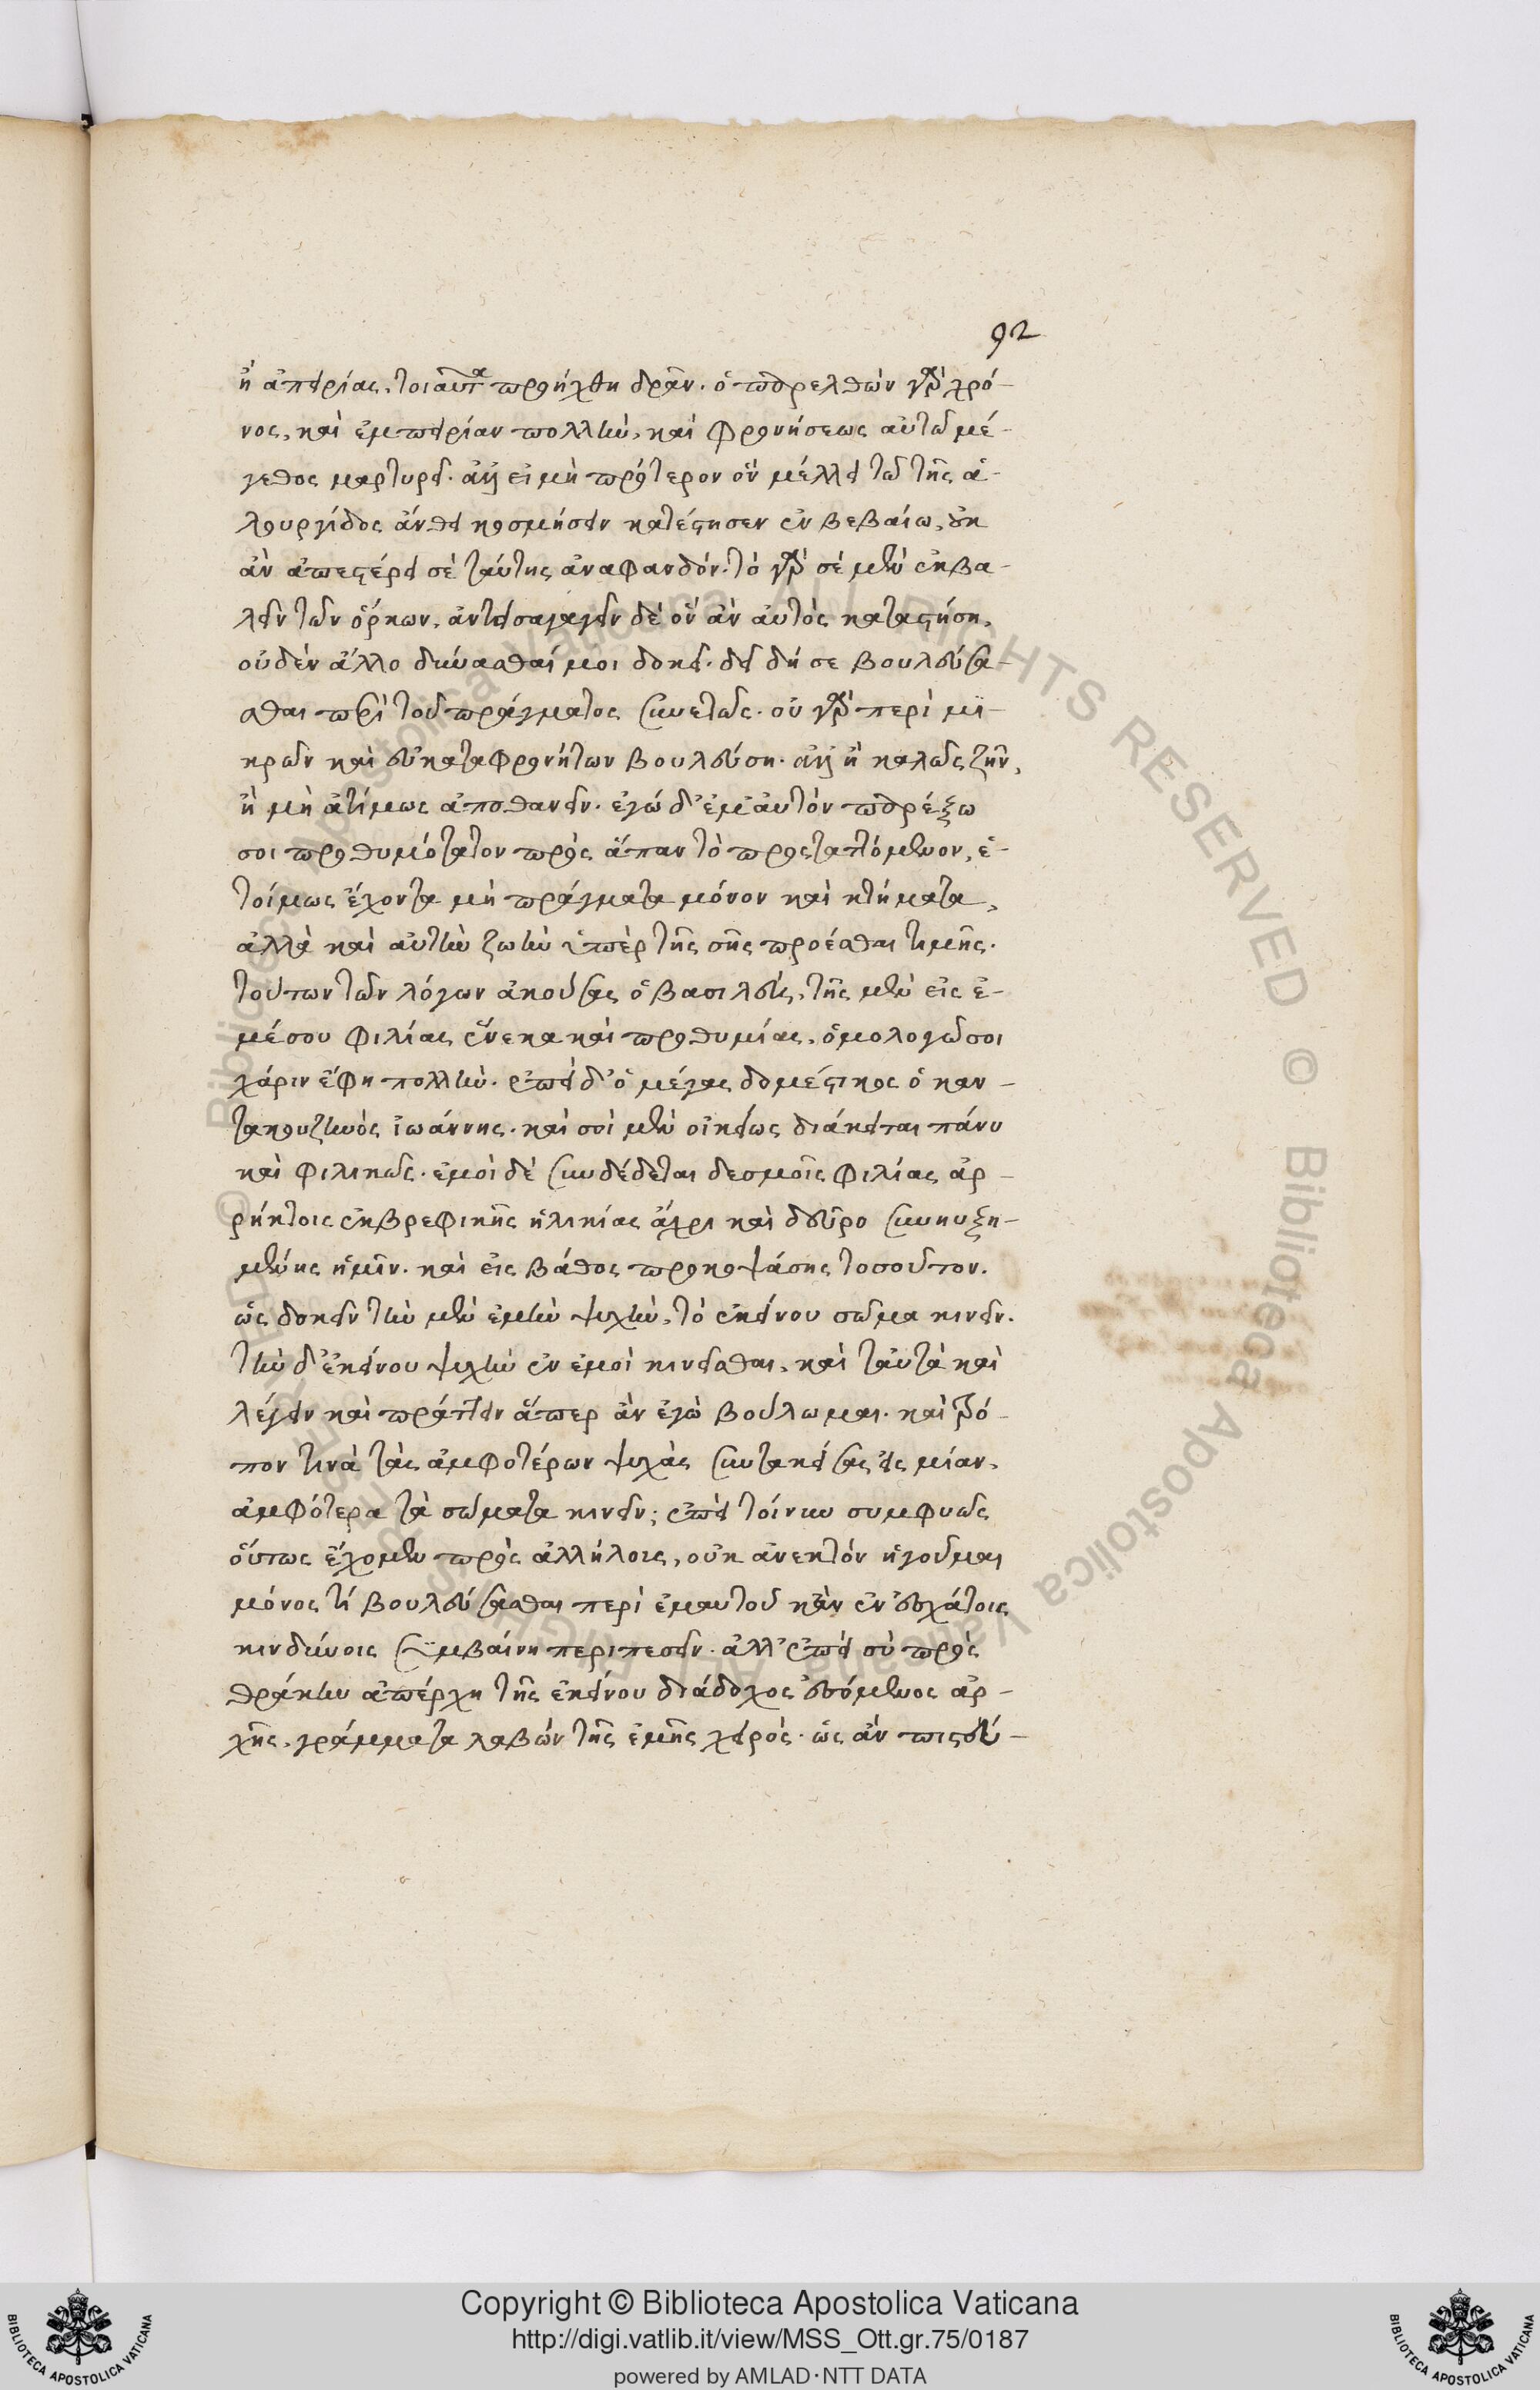 92
ἢ ἀπειρίας, τοιαῦτα προήχθη δρᾶν. ὁ παρελθὼν γὰρ χρό-
νος, καὶ ἐμπειρίαν πολλὴν, καὶ φρονήσεως αὐτῶ μέ-
γεθος μαρτυρεῖ. ἀλλ' εἰ μὴ πρότερον ὃν μέλλει τῶ τῆς ἁ-
λουργίδος ἄνθει κοσμήσειν κατέστησεν ἐν βεβαίω, οὐκ
ἂν ἀπεστέρει σὲ ταύτης ἀναφανδόν. τὸ γὰρ σὲ μὲν ἐκβα-
λεῖν τῶν ὅρκων, ἀντεισαγαγεῖν δὲ ὃν ἂν αὐτὸς καταστήση,
οὐδὲν ἄλλο δύνασθαί μοι δοκεῖ. δεῖ δή σε βουλεύσα-
σθαι περὶ τοῦ πράγματος συνετῶς. οὐ γὰρ περὶ μι-
κρῶν καὶ εὐκαταφρονήτων βουλεύση. ἀλλ' ἢ καλῶς ζῆν,
ἢ μὴ ἀτίμως ἀποθανεῖν. ἐγώ δ' ἐμαυτὸν παρέξω
σοι προθυμότατον πρὸς ἅπαν τὸ προσταττόμενον, ἑ-
τοίμως ἔχοντα μὴ πράγματα μόνον καὶ κτήματα,
ἀλλὰ καὶ αὐτὴν ζωὴν ὑπὲρ τῆς σῆς προέσθαι τιμῆς.
τούτων τῶν λόγων ἀκούσας ὁ βασιλεὺς, τῆς μὲν εἰς ἐ-
μέ σου φιλίας ἕνεκα καὶ προθυμίας, ὁμολογῶ σοι
χάριν ἔφη πολλὴν. ἐπεὶ δ' ὁ μέγας δομέστικος ὁ καν-
τακουζηνὸς ἰωάννης. καὶ σοὶ μὲν οἰκείως διάκειται πάνυ
καὶ φιλικῶς. ἐμοὶ δὲ συνδέδεται δεσμοῖς φιλίας ἀρ-
ρήκτοις ἐκ βρεφικῆς ἡλικίας ἄχρι καὶ δεῦρο συνηυξη-
μένης ἡμῖν. καὶ εἰς βάθος προκοψάσης τοσοῦτον.
ὡς δοκεῖν τὴν μὲν ἐμὴν ψυχὴν, τὸ ἐκείνου σῶμα κινεῖν.
τὴν δ' ἐκείνου ψυχὴν ἐν ἐμοὶ κινεῖσθαι, καὶ ταὐτὰ καὶ
λέγειν καὶ πράττειν ἅπερ ἂν ἐγὼ βούλωμαι. καὶ τρό-
πον τινὰ τὰς ἀμφοτέρων ψυχὰς συντακείσας εἰς μίαν,
ἀμφότερα τὰ σώματα κινεῖν; ἐπεὶ τοίνυν συμφυῶς
οὕτως ἔχομεν πρὸς ἀλλήλοις, οὐκ ἀνεκτὸν ἡγοῦμαι
μόνος τί βουλεύσασθαι περὶ ἐμαυτοῦ κἂν ἐν ἐσχάτοις
κινδύνοις συμβαίνη περιπεσεῖν. ἀλλ' ἐπεὶ σὺ πρὸς
θράκην ἀπέρχη τῆς ἐκείνου διάδοχος ἐσόμενος ἀρ-
χῆς, γράμματα λαβὼν τῆς ἐμῆς χειρὸς. ὡς ἂν πιστεύ-
Copyright © Biblioteca Apostolica Vaticana
http://digi.vatlib.it/view/MSS_Ott.gr.75/0187
powered by AMLAD·NTT DATA